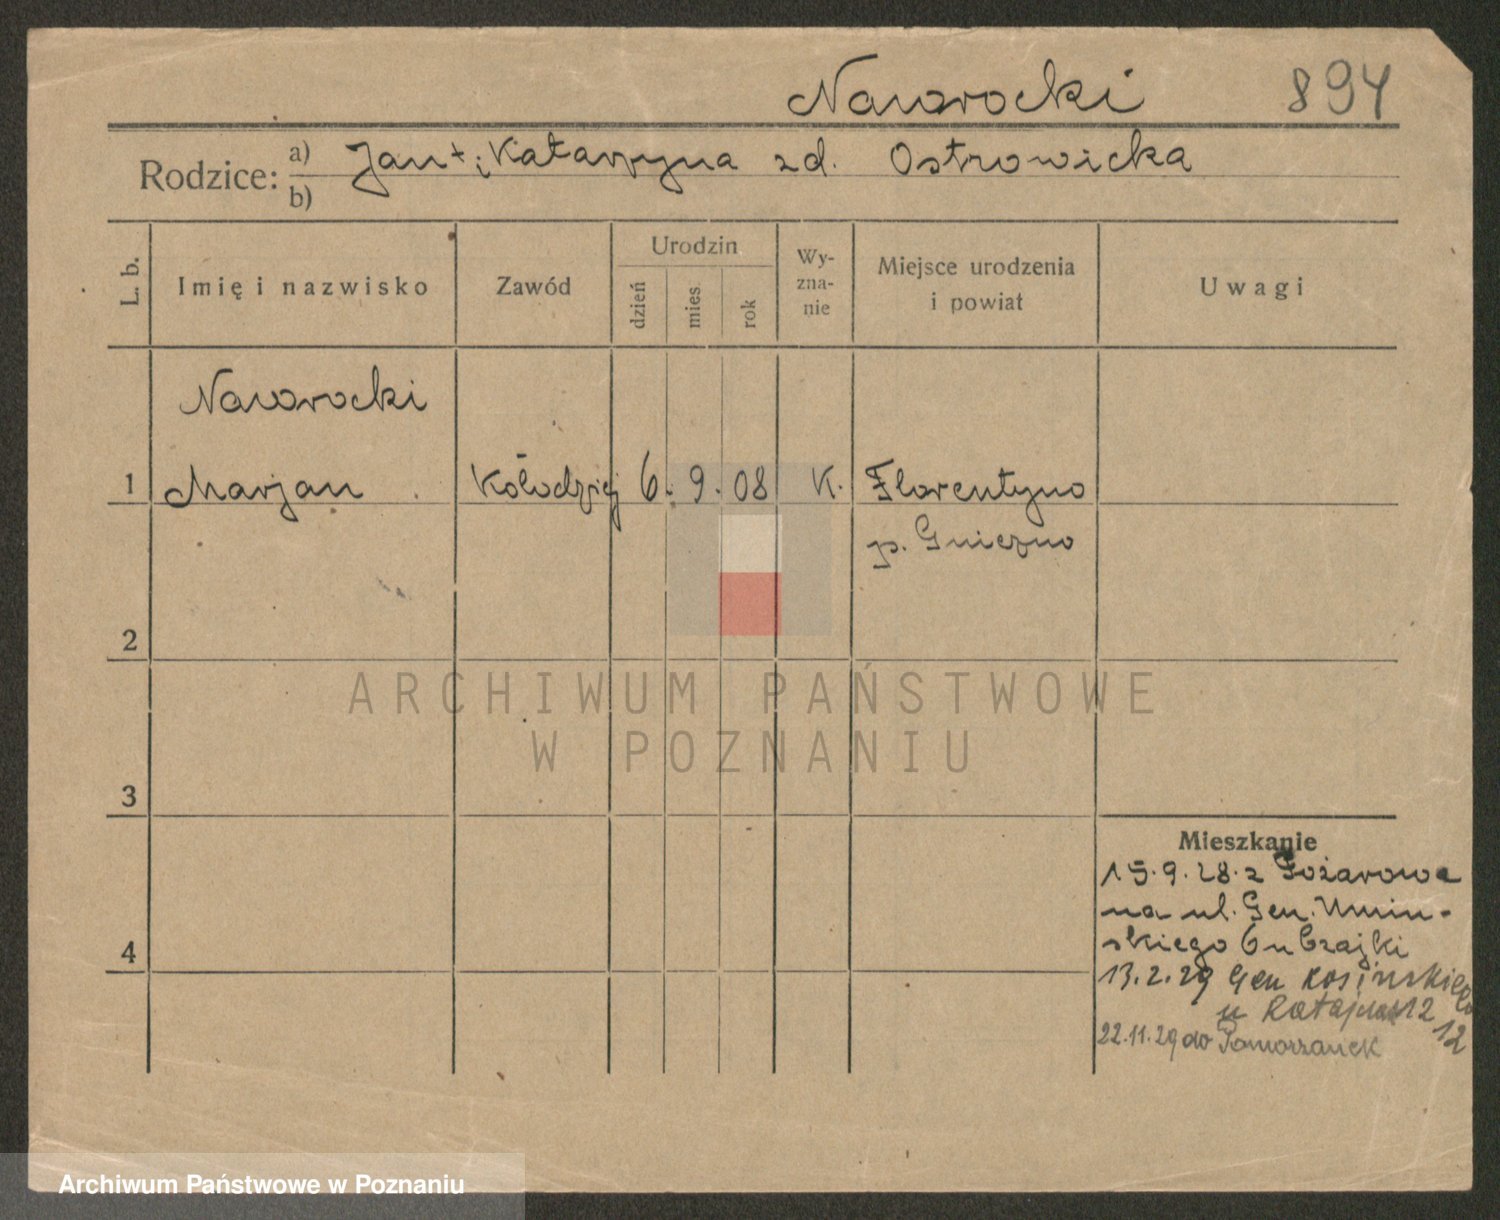 Nawrocki 894
Rodzice: a) Jan + i Katarzyna zd. Ostrowicka
b)
L. b. Imię i nazwisko Zawód Urodzin dzień mies rok Wy-zna-nie Miejsce urodzenia i powiat Uwagi
Nawrocki
1 Marjan Kołodziej 6. 9. 08 K. Florentyno
p. Gniezno
2
ARCHIWUM PAŃSTWOWE
W POZNANIU
3
Mieszkanie
15.9.28. z Pożarowa
na ul. Gen. Umiń-
skiego 6 u Czajki
13.2.29 Gen Kosińskiego
12
u Ratajczak 12
4
22.11.29 do Pomorzanek
Archiwum Państwowe w Poznaniu